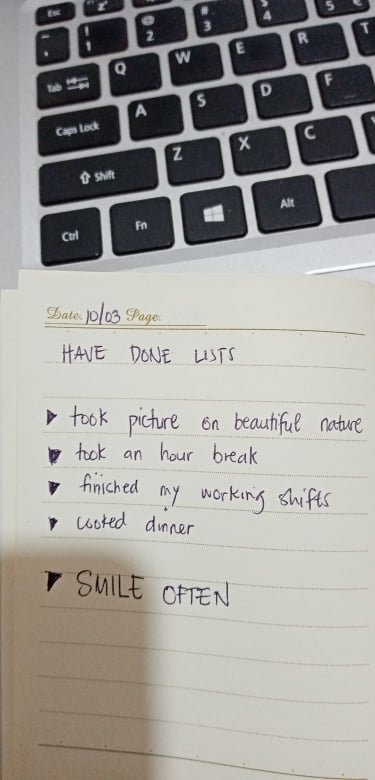 Esc
~ ` ! 1 @ 2 # 3 4 5
Tab Q W E R T
Caps Lock A S D F
Shift Z X C
Ctrl Fn Alt
Date. 10/03 Page.
HAVE DONE LISTS
took picture on beautiful nature
took an hour break
finiched my working shifts
cooted dinner
SMILE OFTEN